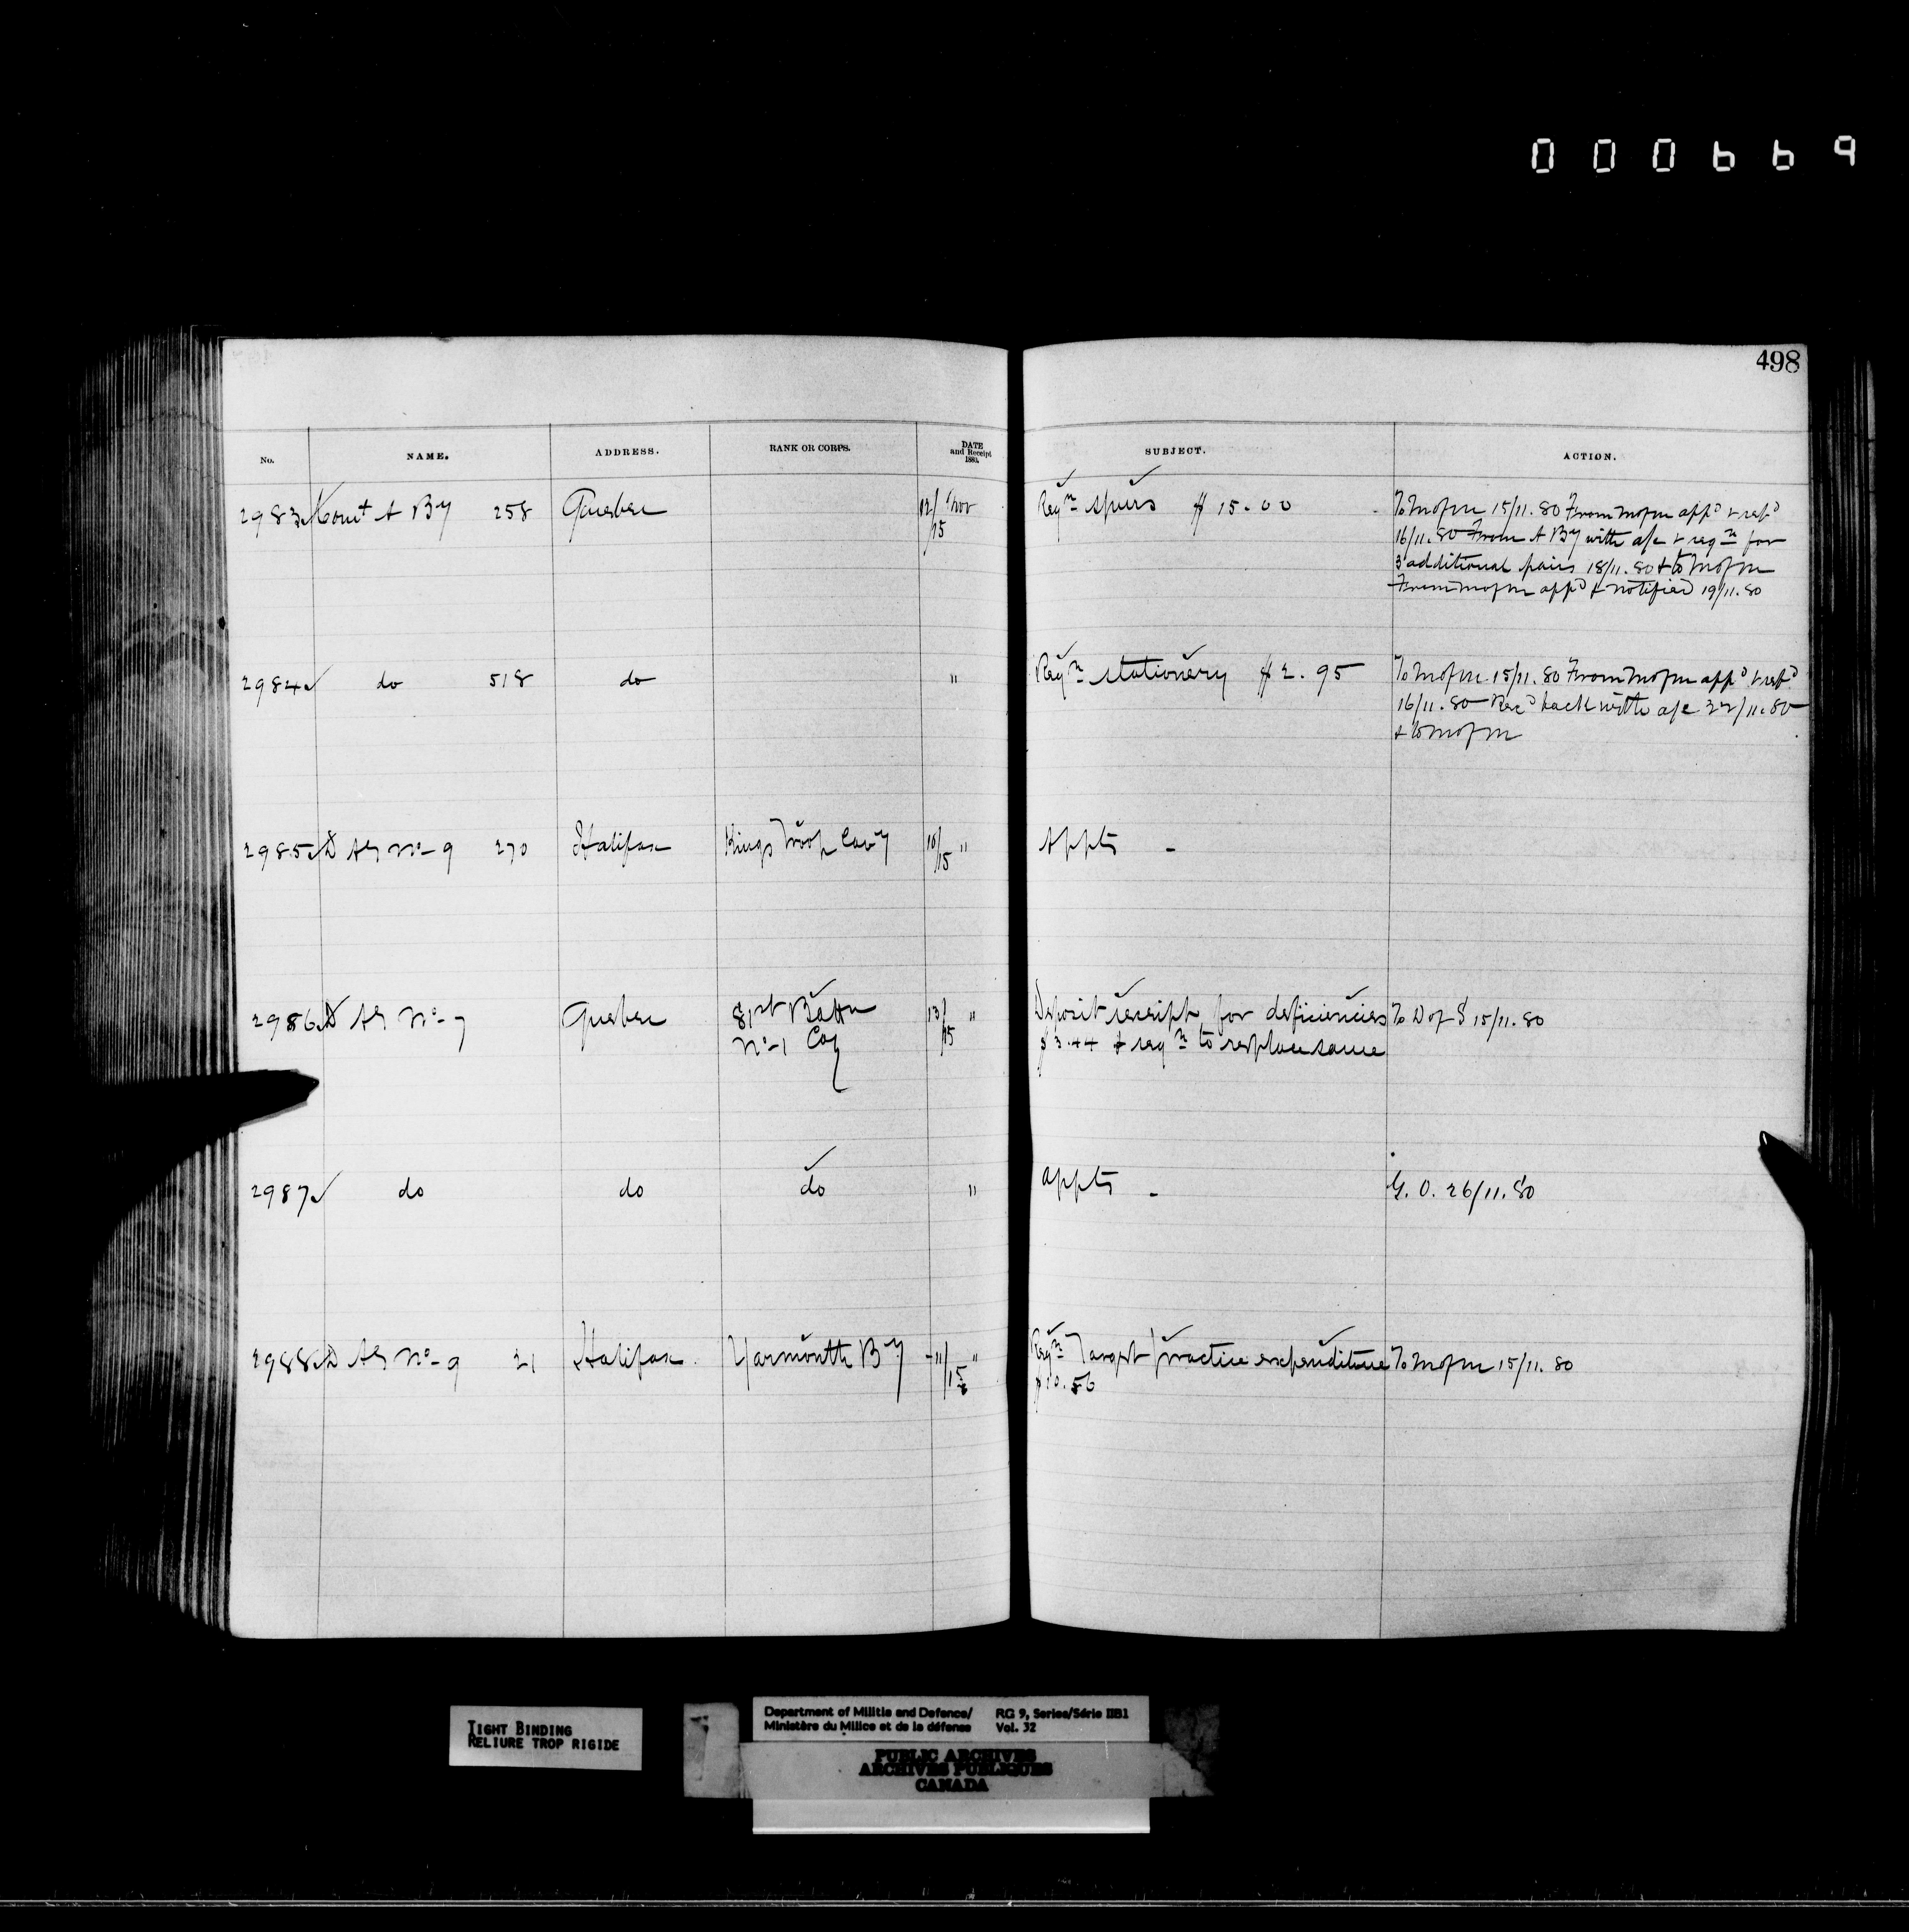 000669
498
No. NAME. ADDRESS. RANK OR CORPS. DATE and Receipt 1880. SUBJECT. ACTION.
2983 Comt A By 258 Quebec 12/15 Nov Reqn spurs $15.00 To M of M 15/11.80 From M of M appd & retd
16/11.80 From A By with a/c & reqn for
3 additional pairs 18/11.80 & to M of M
From M of M appd & notified 19/11.80
2984 do 518 do " Reqn stationery $2.95 To M of M 15/11.80 From M of M appd & retd
16/11.80 Recd back with a/c 22/11.80
& to M of M
2985 D AG No-9 270 Halifax Kings Troop Cavy 10/15 " Appts -
2986 D AG No-7 Quebec 81st Battn 13/15 " Deposit receipt for deficiencies To D of S 15/11.80
No-1 Coy $3.44 & reqn to replace same
2987 do do do " appts - G.O. 26/11.80
2988 D AG No-9 21 Halifax Yarmouth By -11/15 " Reqn Target practice expenditure To M of M 15/11.80
$10.56
TIGHT BINDING
RELIURE TROP RIGIDE
Department of Militia and Defence/ RG 9, Series/Série IIB1
Ministère du Milice et de la défense Vol. 32
PUBLIC ARCHIVES
ARCHIVES PUBLIQUES
CANADA